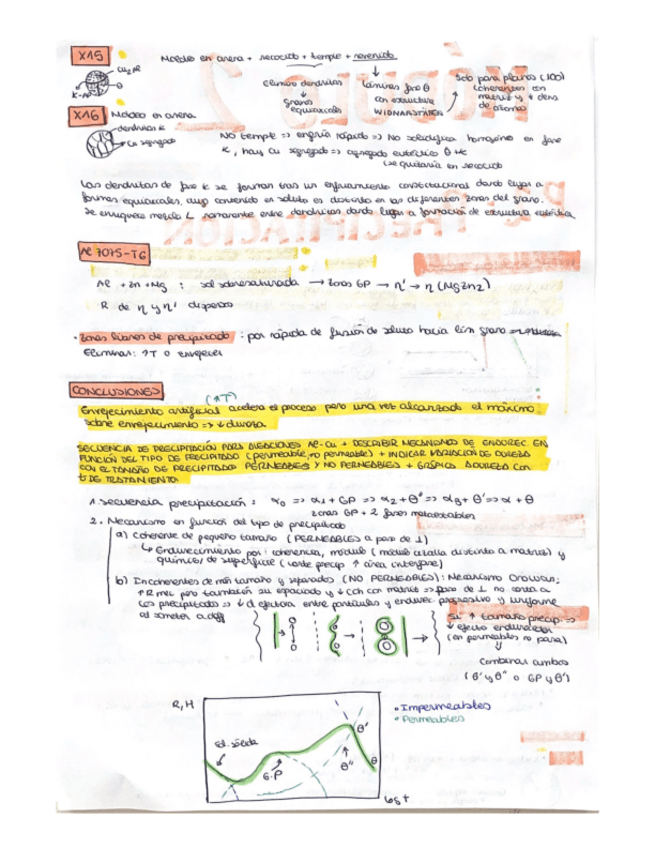 X15
Moldeo en arena + recocido + temple + revenido
Cu2Al
θ
K-Al
Elimino dendritas
↓
granos
equiaxiales
láminas fase θ
con estructura
WIDMANSTÄTTEN
Solo para planos (100)
coherentes con
matriz y ↓ dens
de átomos
X16
Moldeo en arena
dendritas K
Cu segregado
NO temple => enfría rápido => No solidifica homogéneo en fase
K, hay Cu segregado => agregado eutéctico θ+K
(se quitaría en recocido
Las dendritas de fase K se forman tras un enfriamiento constitucional dando lugar a
formas equiaxiales, cuyo contenido en soluto es distinto en las diferentes zonas del grano.
Se enriquece mezcla L remanente entre dendritas dando lugar a formación de estructura eutéctica
Al 7075-T6
Al + Zn + Mg : sol sobresaturada → zonas GP → η' → η (MgZn2)
R de η y η' disperso
• Zonas libres de precipitado : por rápida de fusión de soluto hacia lím grano
Eliminar: ↑T o envejecer
CONCLUSIONES
(↑T)
Envejecimiento artificial acelera el proceso pero una vez alcanzado el máximo
sobre envejecimiento => ↓ dureza
SECUENCIA DE PRECIPITACIÓN PARA ALEACIONES Al-Cu + DESCRIBIR MECANISMO DE ENDUREC. EN
FUNCIÓN DEL TIPO DE PRECIPITADO (permeable, no permeable) + INDICAR VARIACIÓN DE DUREZA
CON EL TAMAÑO DE PRECIPITADOS PERMEABLES Y NO PERMEABLES + GRÁFICA DUREZA CON
t DE TRATAMIENTO.
1. Secuencia precipitación : α0 => α1 + GP => α2 + θ'' => α3 + θ' => α + θ
zonas GP + 2 fases metaestables
2. Mecanismo en función del tipo de precipitado
a) Coherente de pequeño tamaño (PERMEABLES a paso de ⊥)
↳ Endurecimiento por: coherencia, módulo (módulo cizalla distinto a matriz) y
químico/de superficie (corte precip ↑ área interfase)
b) Incoherentes de más tamaño y separados (NO PERMEABLES): Mecanismo Orowan;
↑R mec pero también su espaciado y ↓ coh con matriz => paso de ⊥ no corta a
los precipitados => ↓ d efectiva entre partículas y endurec progresivo y uniforme
al someter a def
Si ↑ tamaño precip. =>
↓ efecto endurecedor
(en permeables no pasa)
Combinar ambos
(θ' y θ'' o GP y θ')
R, H
sol. sólida
G.P
θ''
θ'
θ
log t
• Impermeables
• Permeables